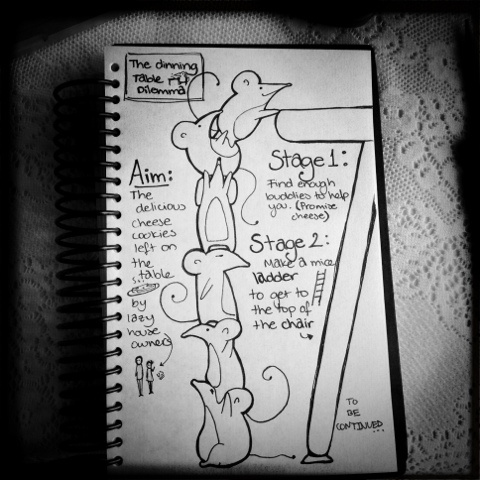 The dinning
Table
Dilemma
Aim:
The
delicious
cheese
cookies
left on
the
table
by
lazy
house
owners
Stage 1:
Find enough
buddies to help
you. (Promise
cheese)
Stage 2:
Make a mice
ladder
to get to
the top of
the chair
TO
BE
CONTINUED...